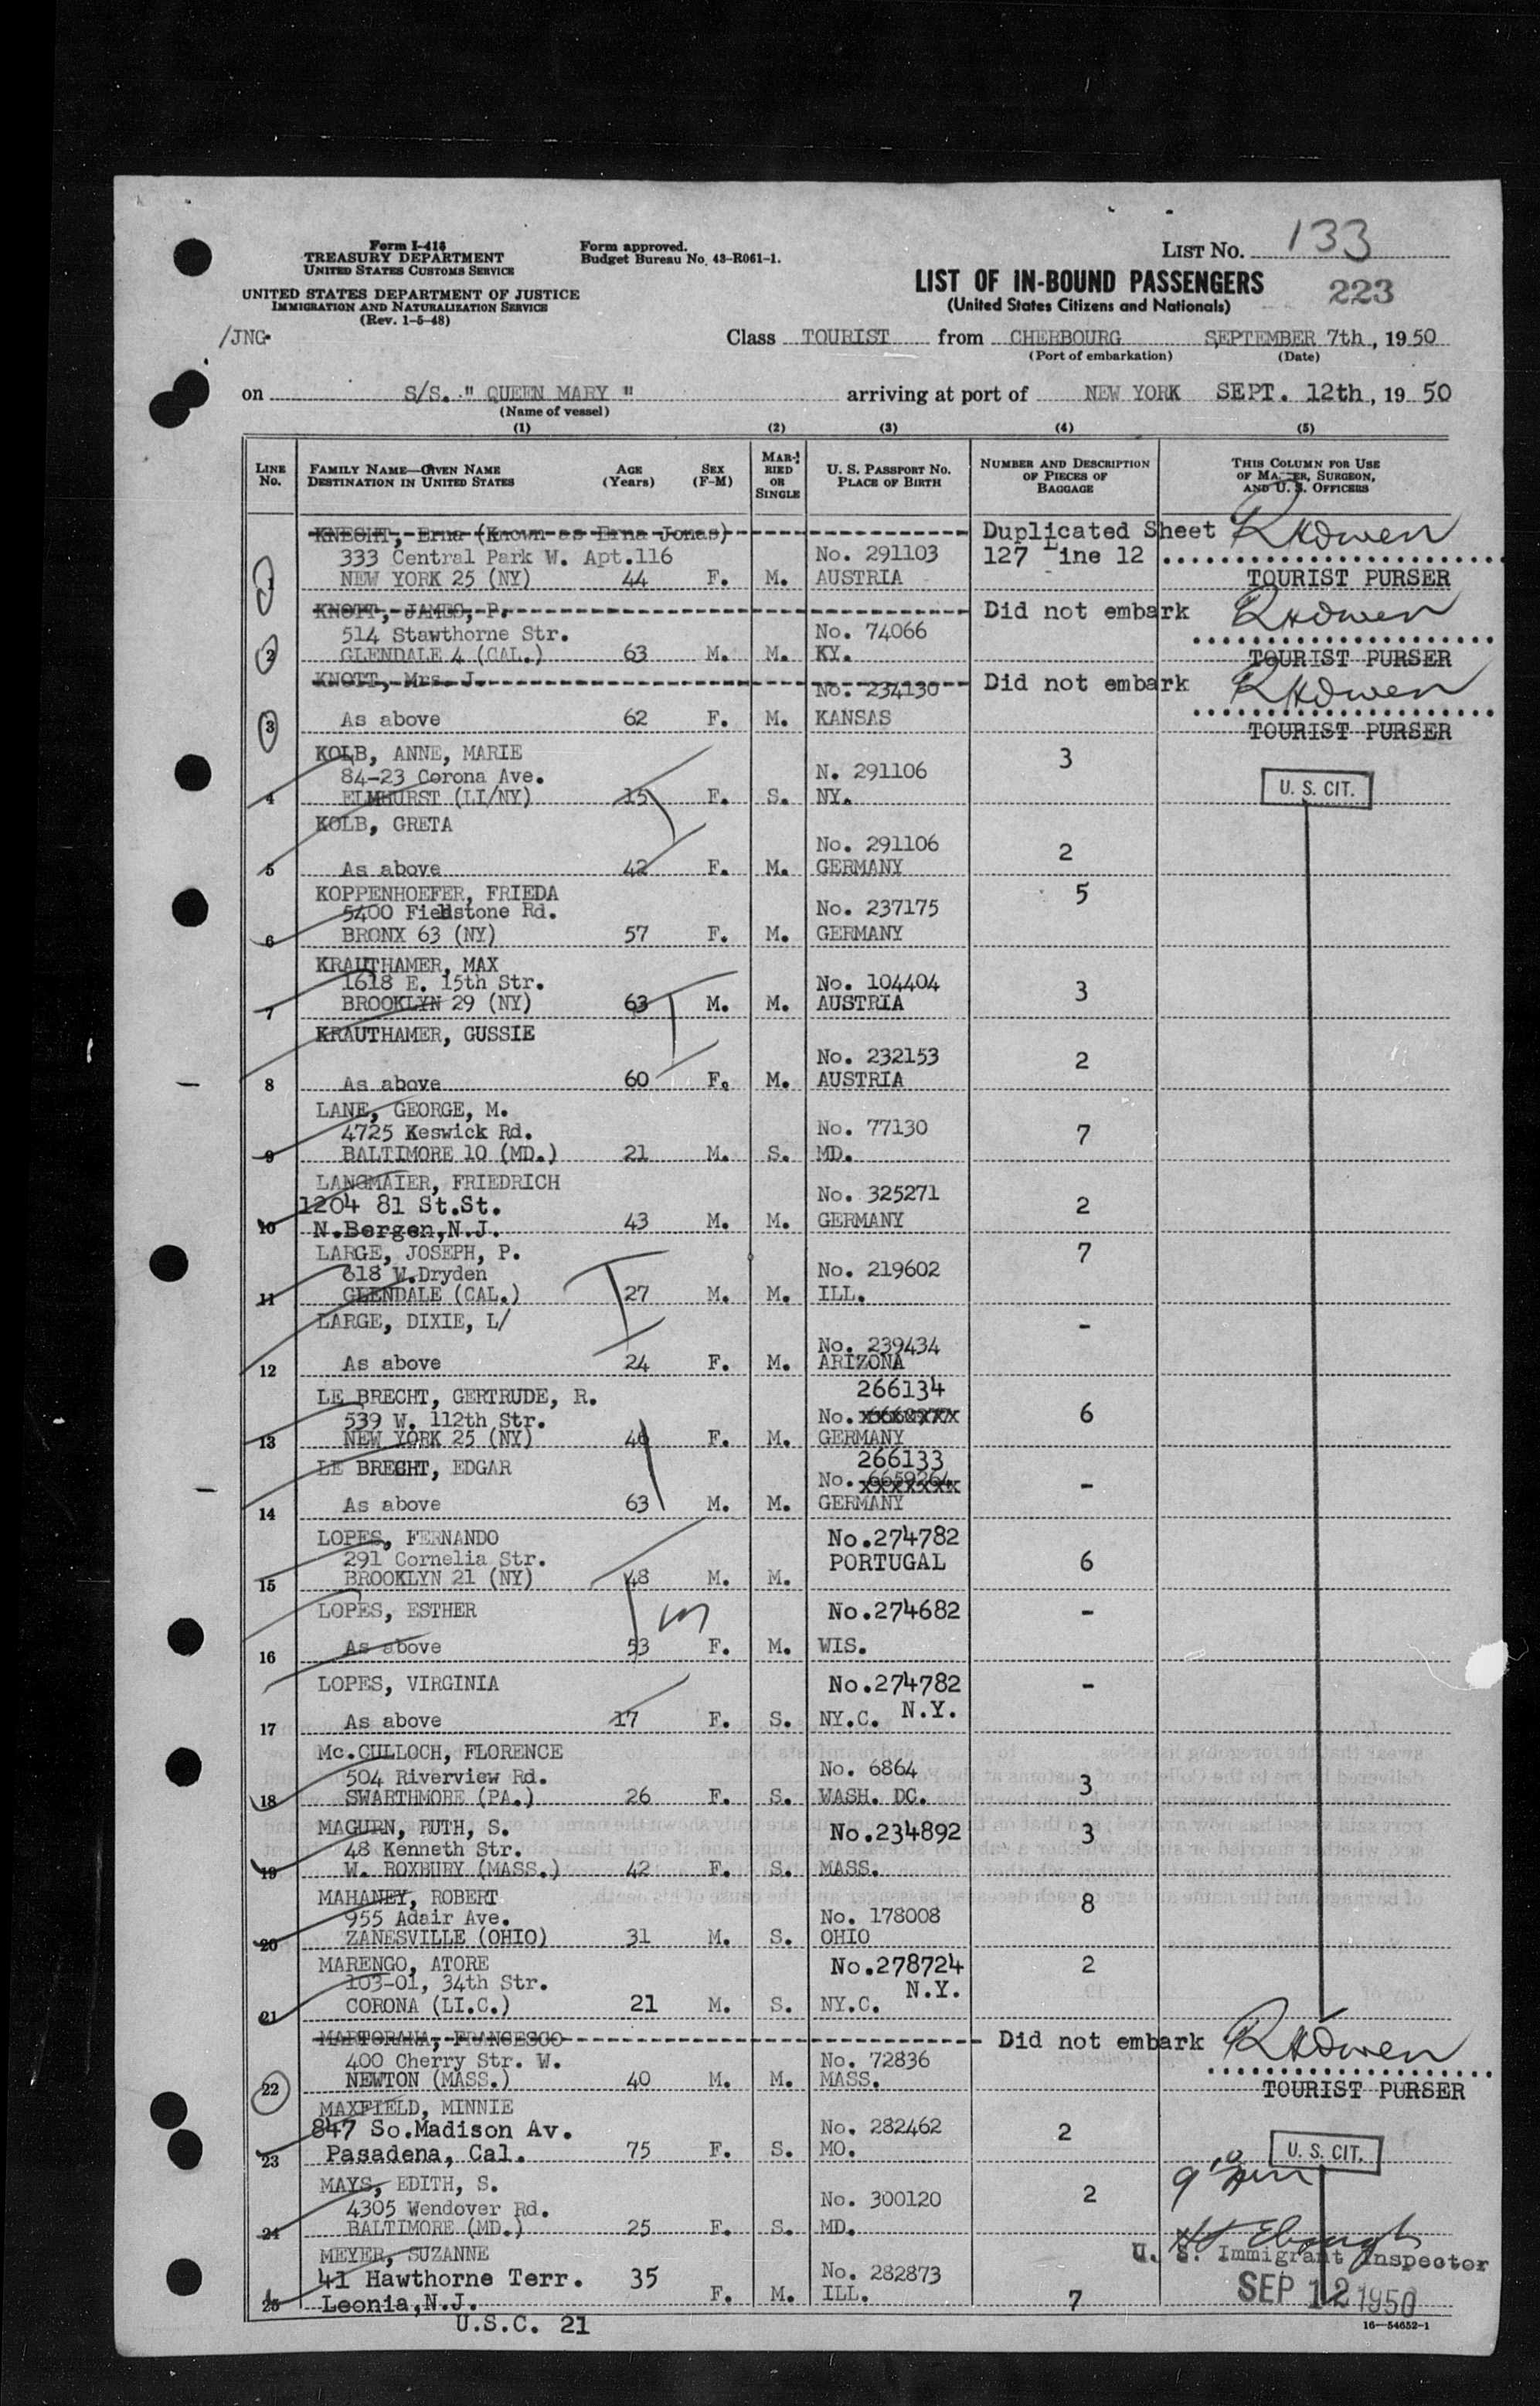 Form I-418
TREASURY DEPARTMENT
UNITED STATES CUSTOMS SERVICE
UNITED STATES DEPARTMENT OF JUSTICE
IMMIGRATION AND NATURALIZATION SERVICE
(Rev. 1-5-48)
/JNG
Form approved.
Budget Bureau No. 43-R061-1.
LIST NO. 133
LIST OF IN-BOUND PASSENGERS
(United States Citizens and Nationals)
223
Class TOURIST from CHERBOURG SEPTEMBER 7th, 1950
(Port of embarkation) (Date)
on S/S. " QUEEN MARY " arriving at port of NEW YORK SEPT. 12th, 19 50
(Name of vessel)
(1) (2) (3) (4) (5)
LINE No.
FAMILY NAME—GIVEN NAME
DESTINATION IN UNITED STATES
AGE (Years)
SEX (F-M)
MARRIED OR SINGLE
U. S. PASSPORT NO.
PLACE OF BIRTH
NUMBER AND DESCRIPTION OF PIECES OF BAGGAGE
THIS COLUMN FOR USE OF MASTER, SURGEON, AND U. S. OFFICERS
KNECHT, Erna (Known as Erna Jonas) Duplicated Sheet
333 Central Park W. Apt.116 No. 291103 127 Line 12
1 NEW YORK 25 (NY) 44 F. M. AUSTRIA TOURIST PURSER
KNOTT, JAMES, P. Did not embark
514 Stawthorne Str. No. 74066
2 GLENDALE 4 (CAL.) 63 M. M. KY. TOURIST PURSER
KNOTT, Mrs. J. No. 234130 Did not embark
3 As above 62 F. M. KANSAS TOURIST PURSER
KOLB, ANNE, MARIE 3
84-23 Corona Ave. N. 291106 U. S. CIT.
4 ELMHURST (LI/NY) 15 F. S. NY.
KOLB, GRETA
No. 291106 2
5 As above 42 F. M. GERMANY
KOPPENHOEFER, FRIEDA 5
5400 Fieldstone Rd. No. 237175
6 BRONX 63 (NY) 57 F. M. GERMANY
KRAUTHAMER, MAX
1618 E. 15th Str. No. 104404 3
7 BROOKLYN 29 (NY) 63 M. M. AUSTRIA
KRAUTHAMER, GUSSIE
No. 232153 2
8 As above 60 F. M. AUSTRIA
LANE, GEORGE, M.
4725 Keswick Rd. No. 77130 7
9 BALTIMORE 10 (MD.) 21 M. S. MD.
LANGMAIER, FRIEDRICH
1204 81 St.St. No. 325271 2
10 N.Bergen,N.J. 43 M. M. GERMANY
LARGE, JOSEPH, P. 7
618 W.Dryden No. 219602
11 GLENDALE (CAL.) 27 M. M. ILL.
LARGE, DIXIE, L/ -
No. 239434
12 As above 24 F. M. ARIZONA
LE BRECHT, GERTRUDE, R. 266134
539 W. 112th Str. No. 6
13 NEW YORK 25 (NY) 46 F. M. GERMANY
LE BRECHT, EDGAR 266133
No. 6659264 -
14 As above 63 M. M. GERMANY
LOPES, FERNANDO No.274782
291 Cornelia Str. PORTUGAL 6
15 BROOKLYN 21 (NY) 48 M. M.
LOPES, ESTHER No.274682 -
16 As above 53 F. M. WIS.
LOPES, VIRGINIA No.274782 -
17 As above 17 F. S. NY.C. N.Y.
Mc.CULLOCH, FLORENCE
504 Riverview Rd. No. 6864 3
18 SWARTHMORE (PA.) 26 F. S. WASH. DC.
MAGURN, RUTH, S. No.234892 3
48 Kenneth Str.
19 W. ROXBURY (MASS.) 42 F. S. MASS.
MAHANEY, ROBERT 8
955 Adair Ave. No. 178008
20 ZANESVILLE (OHIO) 31 M. S. OHIO
MARENGO, ATORE No.278724 2
103-01, 34th Str. N.Y.
21 CORONA (LI.C.) 21 M. S. NY.C.
MARTORANA, FRANCESCO Did not embark
400 Cherry Str. W. No. 72836
22 NEWTON (MASS.) 40 M. M. MASS. TOURIST PURSER
MAXFIELD, MINNIE
847 So.Madison Av. No. 282462 2
23 Pasadena, Cal. 75 F. S. MO. U. S. CIT.
MAYS, EDITH, S.
4305 Wendover Rd. No. 300120 2
24 BALTIMORE (MD.) 25 F. S. MD.
MEYER, SUZANNE U. S. Immigrant Inspector
41 Hawthorne Terr. 35 No. 282873
25 Leonia,N.J. F. M. ILL. 7 SEP 12 1950
U.S.C. 21
16—54652-1